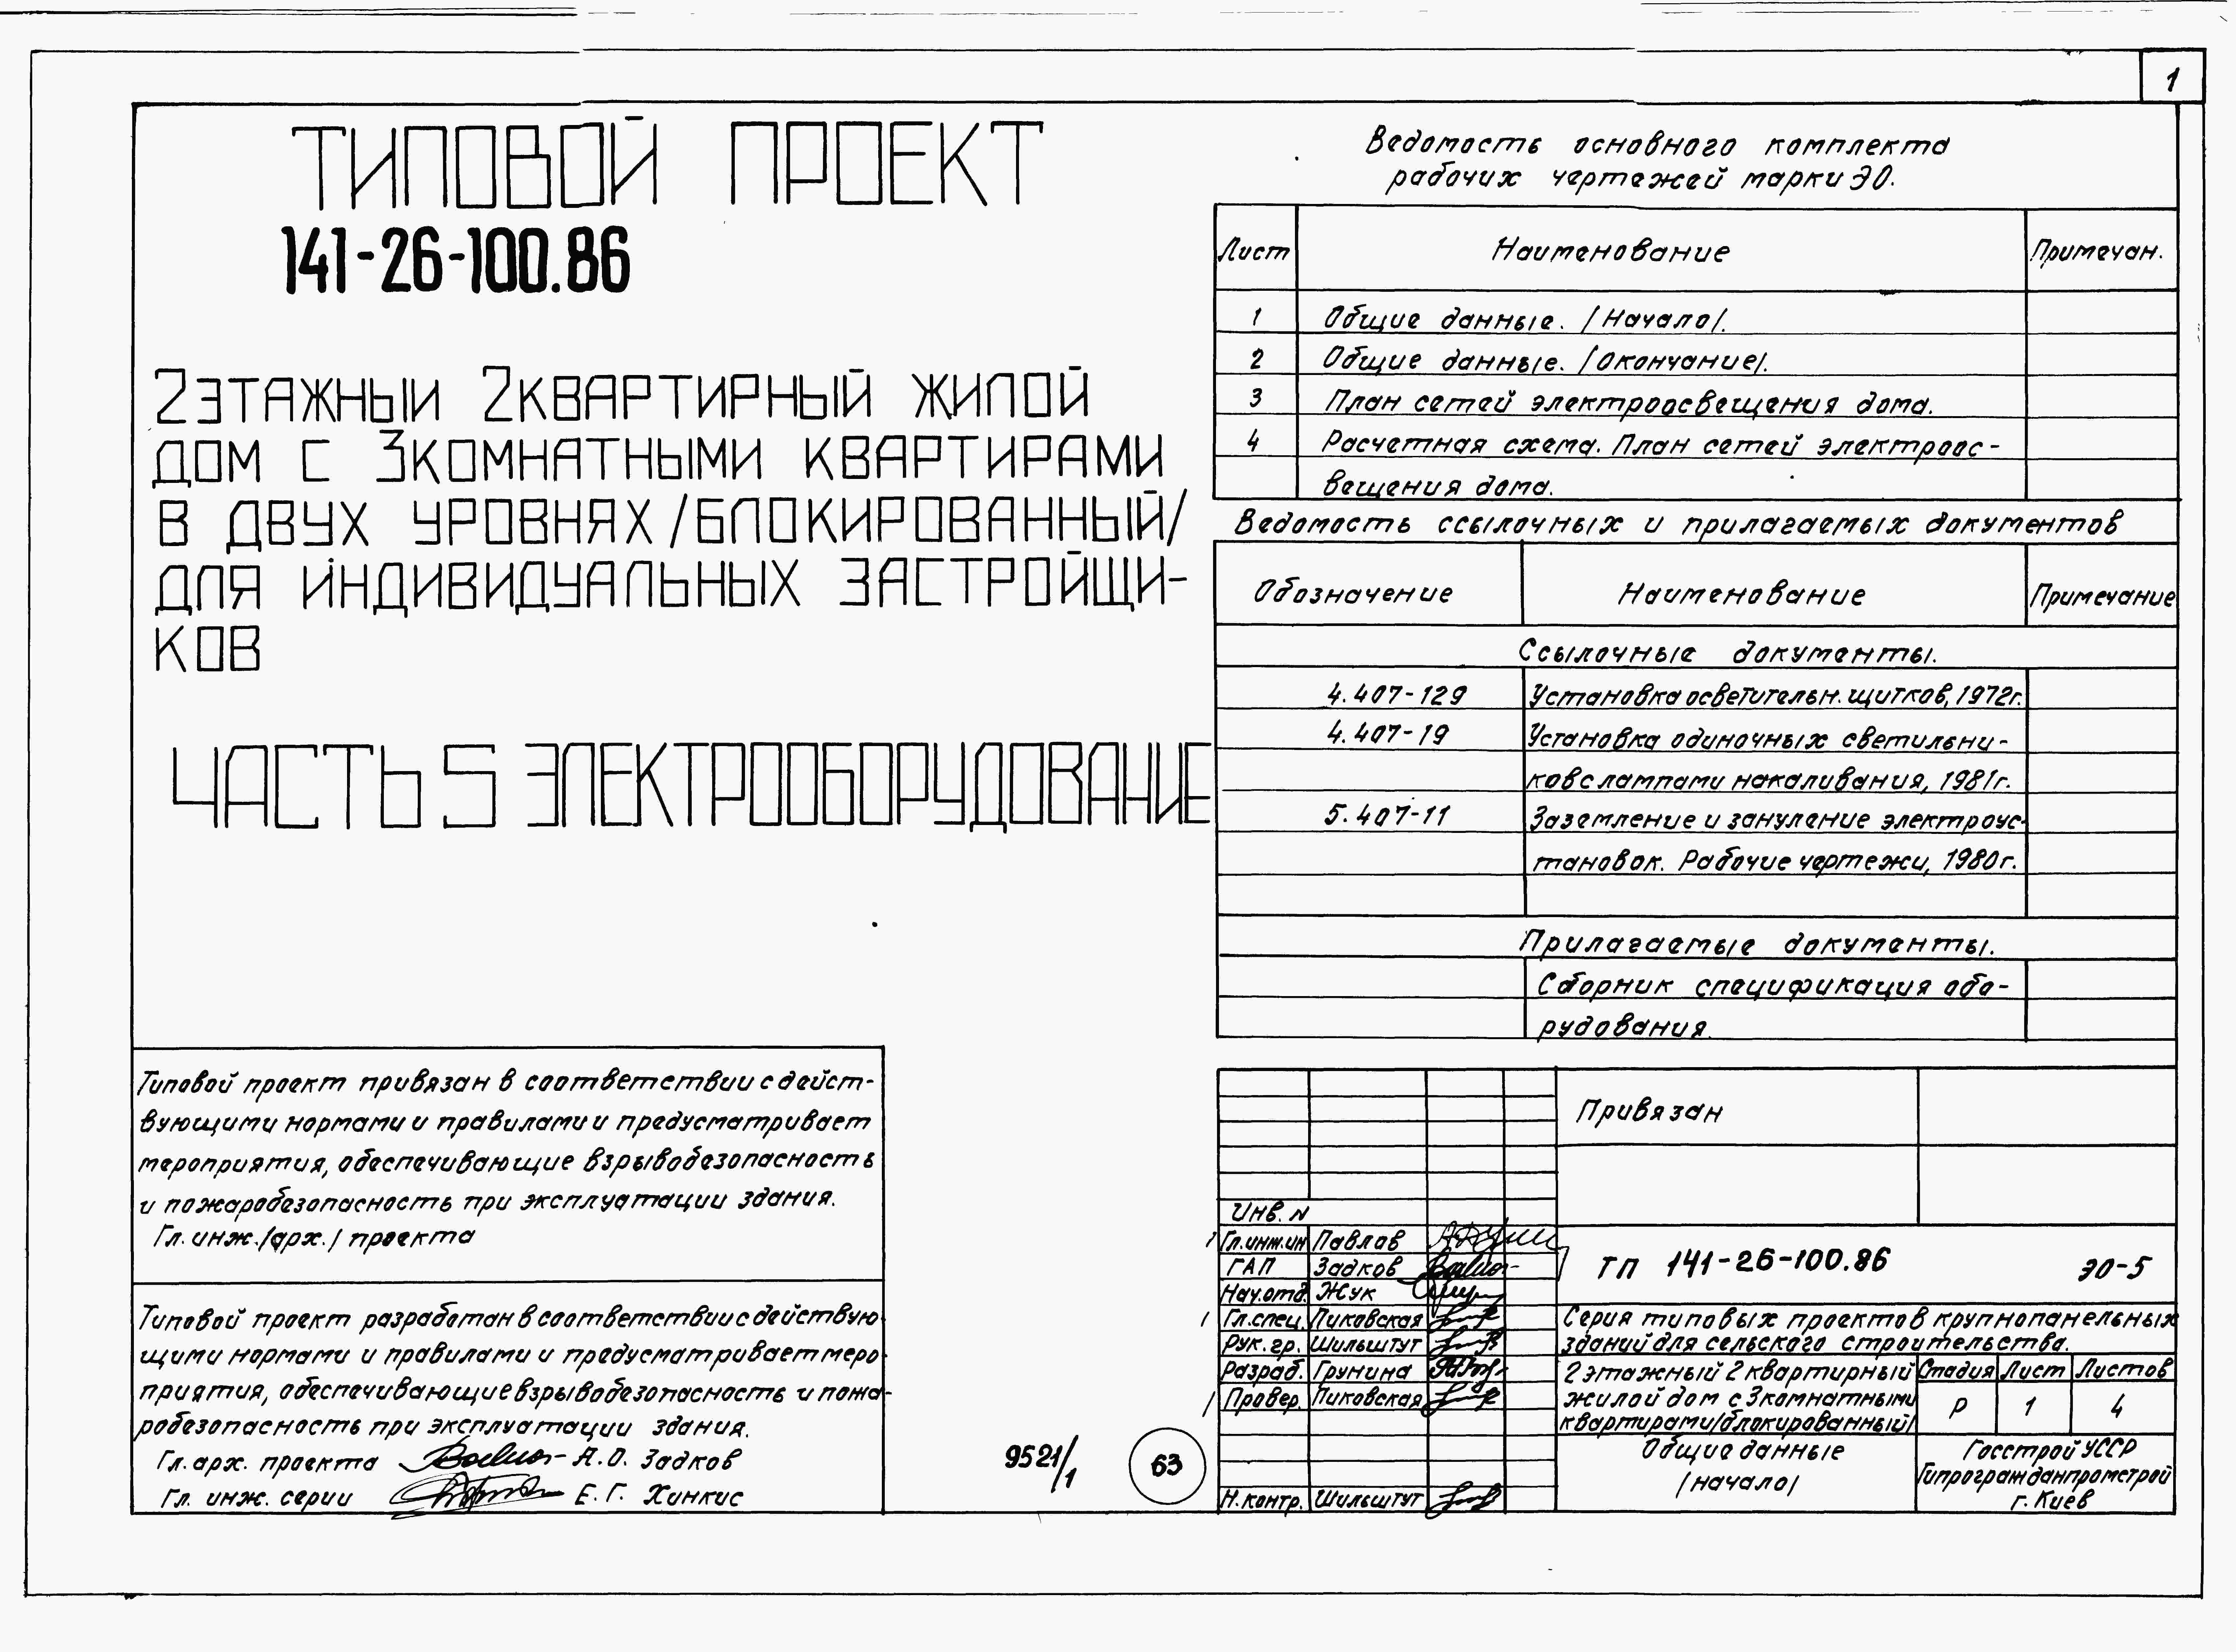 1
ТИПОВОЙ ПРОЕКТ
141-26-100.86
2ЭТАЖНЫЙ 2КВАРТИРНЫЙ ЖИЛОЙ
ДОМ С 3КОМНАТНЫМИ КВАРТИРАМИ
В ДВУХ УРОВНЯХ/БЛОКИРОВАННЫЙ/
ДЛЯ ИНДИВИДУАЛЬНЫХ ЗАСТРОЙЩИ-
КОВ
ЧАСТЬ 5 ЭЛЕКТРООБОРУДОВАНИЕ
Типовой проект привязан в соответствии с дейст-
вующими нормами и правилами и предусматривает
мероприятия, обеспечивающие взрывобезопасность
и пожаробезопасность при эксплуатации здания.
Гл. инж./арх./ проекта
Типовой проект разработан в соответствии с действую
щими нормами и правилами и предусматривает меро
приятия, обеспечивающие взрывобезопасность и пожа-
робезопасность при эксплуатации здания.
Гл. арх. проекта А.О. Задков
Гл. инж. серии Е.Г. Хинкис
9521/1
63
Ведомость основного комплекта
рабочих чертежей марки ЭО.
Лист Наименование Примечан.
1 Общие данные. /Начало/.
2 Общие данные. /Окончание/.
3 План сетей электроосвещения дома.
4 Расчетная схема. План сетей электроос-
вещения дома.
Ведомость ссылочных и прилагаемых документов
Обозначение Наименование Примечание
Ссылочные документы.
4.407-129 Установка осветительн. щитков, 1972г.
4.407-19 Установка одиночных светильни-
ков с лампами накаливания, 1981г.
5.407-11 Заземление и зануление электроус-
тановок. Рабочие чертежи, 1980г.
Прилагаемые документы.
Сборник спецификация обо-
рудования.
Привязан
Инв. N
Гл.инж.ин Павлов
ГАП Задков
Нач.отд. Жук
Гл.спец. Пиковская
Рук. гр. Шильштут
Разраб. Грунина
Провер. Пиковская
Н. контр. Шильштут
ТП 141-26-100.86 ЭО-5
Серия типовых проектов крупнопанельных
зданий для сельского строительства.
2 этажный 2 квартирный
жилой дом с 3комнатными
квартирами/блокированный/
Стадия Лист Листов
Р 1 4
Общие данные
/начало/
Госстрой УССР
Гипрогражданпромстрой
г. Киев